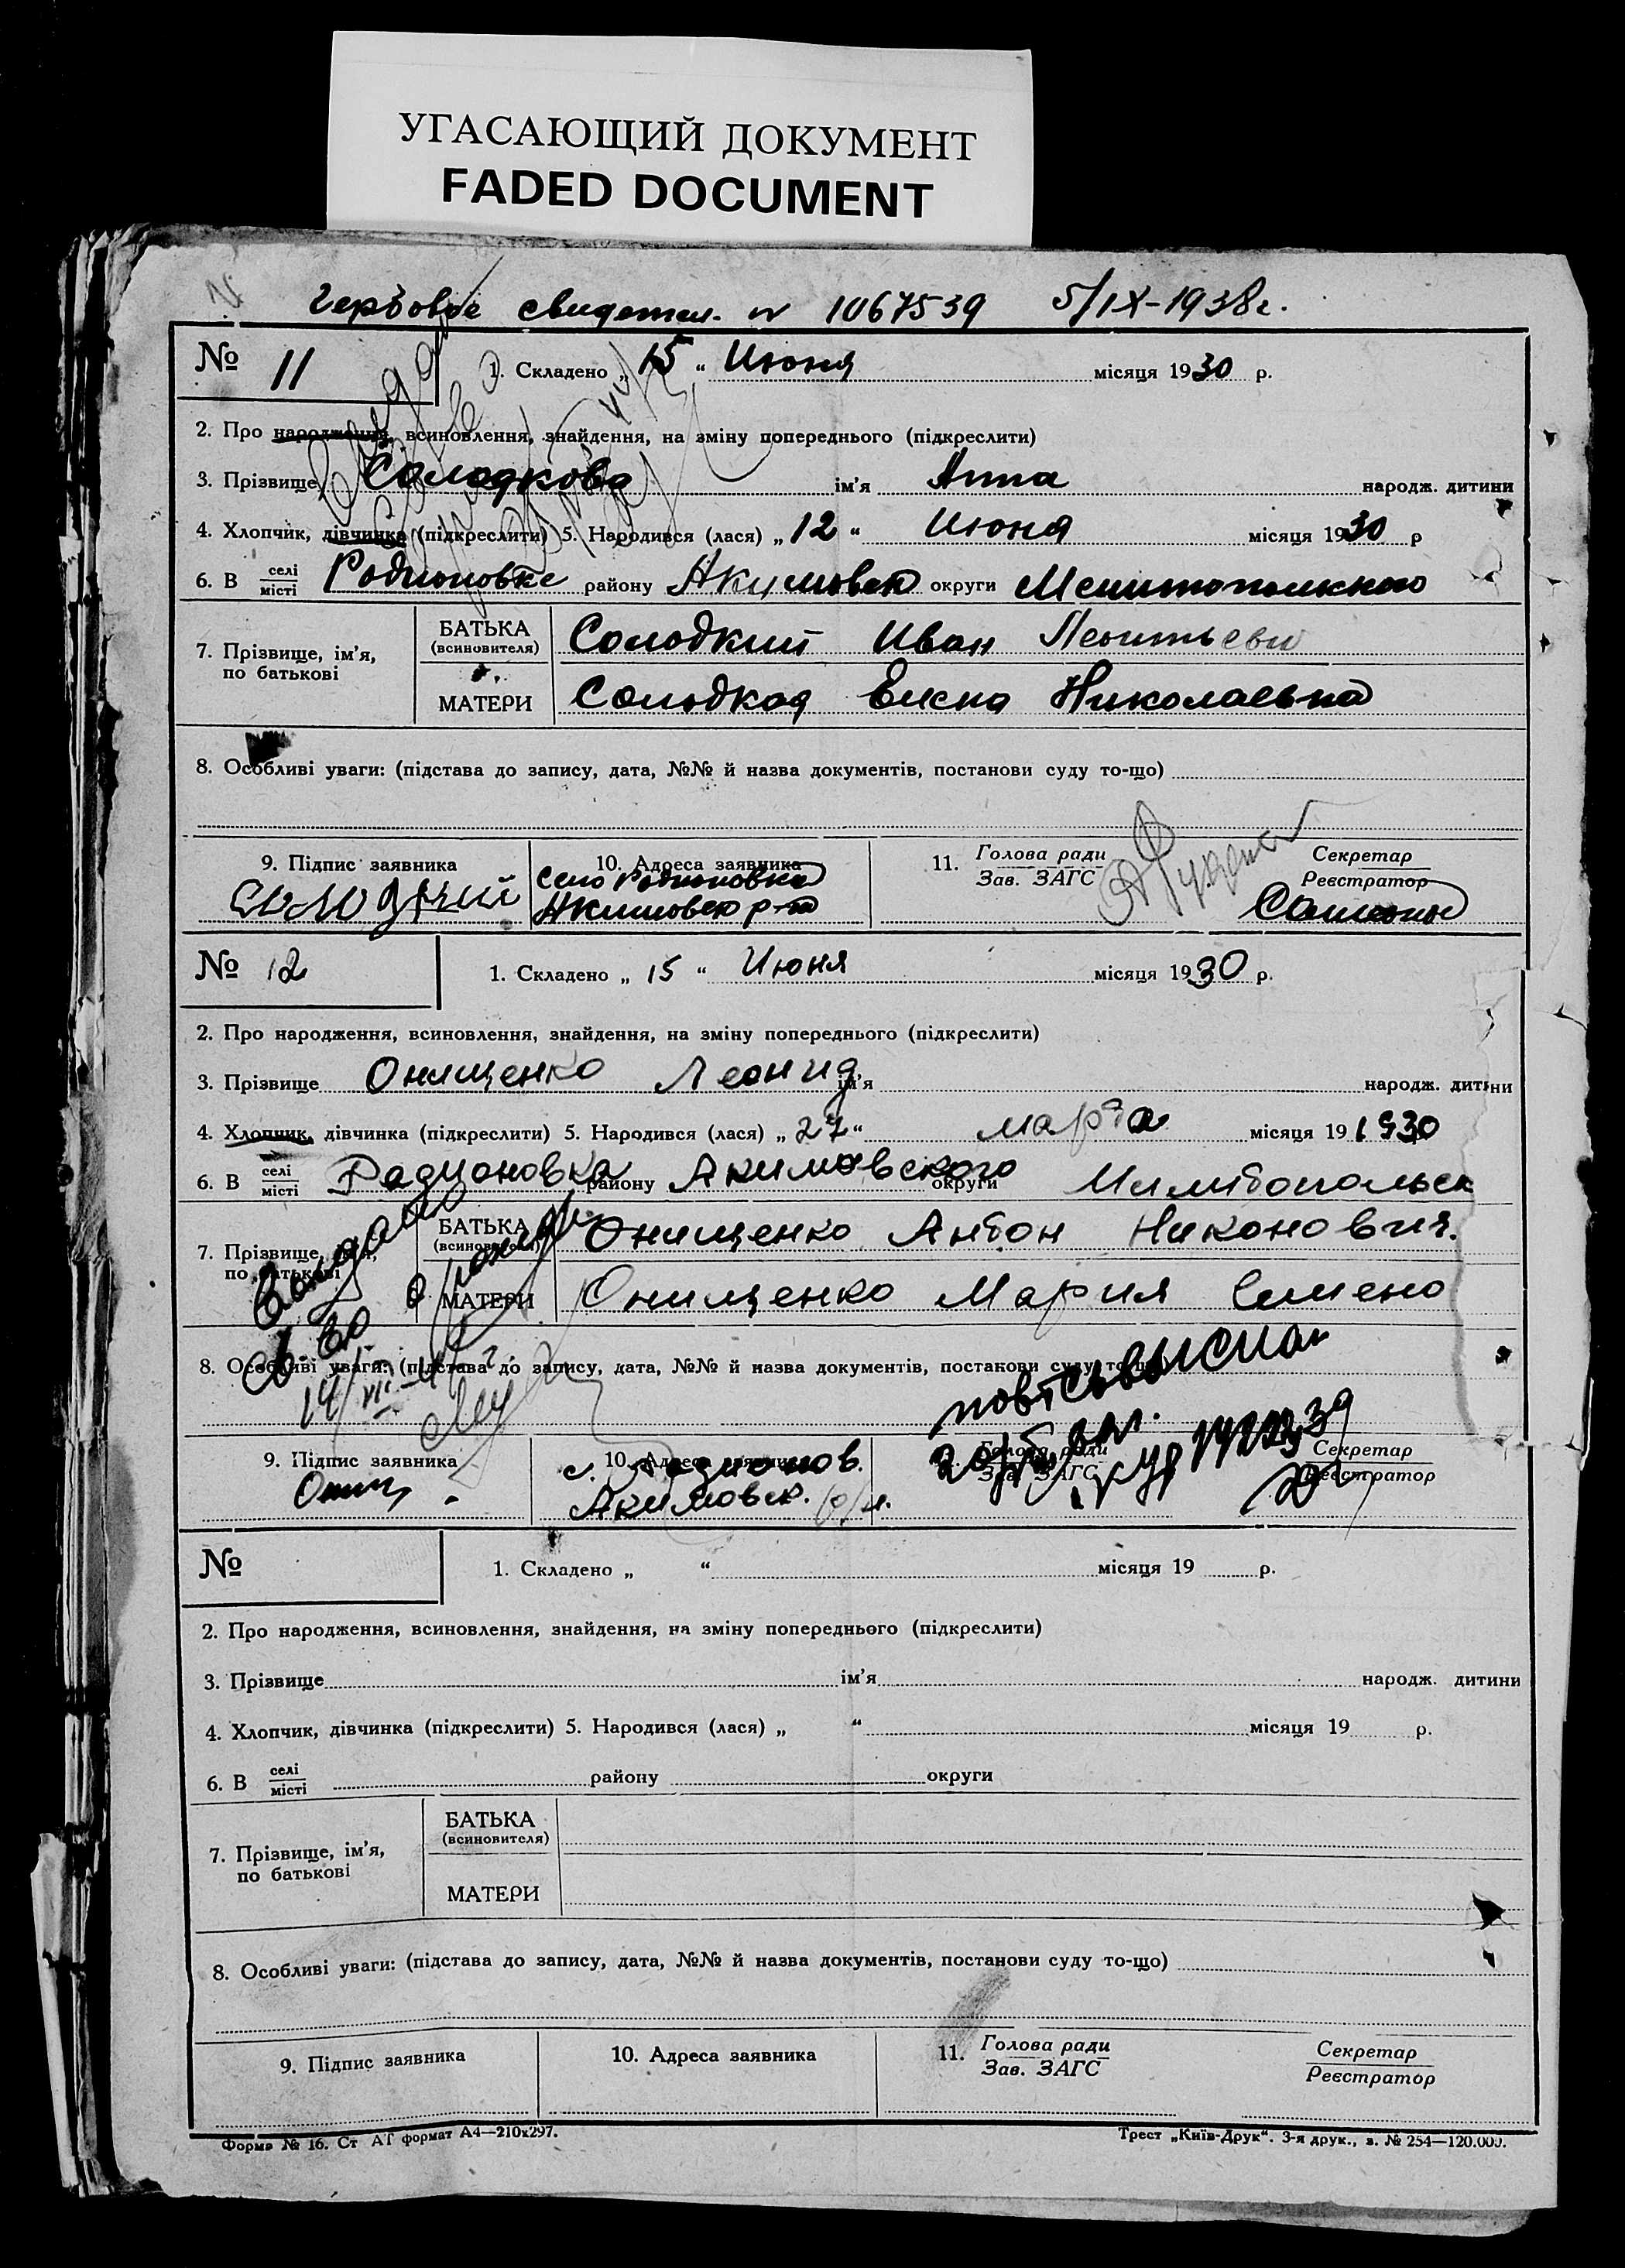 УГАСАЮЩИЙ ДОКУМЕНТ
FADED DOCUMENT
Гербовое свидетел. № 1067539 5/IX-1938г.
№ 11
1. Складено „ 15 “ Июня місяця 1930 р.
2. Про народження, всиновлення, знайдення, на зміну попереднього (підкреслити)
3. Прізвище Солодкова ім'я Анна народж. дитини
4. Хлопчик, дівчинка (підкреслити) 5. Народився (лася) „ 12 “ Июня місяця 1930 р
6. В селі місті Родионовке району Акимовск округи Мелитопольского
7. Прізвище, ім'я, по батькові
БАТЬКА (всиновителя) Солодкий Иван Леонтьеви
МАТЕРИ Солодкая Елена Николаевна
8. Особливі уваги: (підстава до запису, дата, №№ й назва документів, постанови суду то-що)
9. Підпис заявника 10. Адреса заявника 11. Голова ради Зав. ЗАГС Секретар Реєстратор
Солодкий Село Родионовка
Акимовск р-на
№ 12
1. Складено „ 15 “ Июня місяця 1930 р.
2. Про народження, всиновлення, знайдення, на зміну попереднього (підкреслити)
3. Прізвище Онищенко Леонид ім'я народж. дитини
4. Хлопчик, дівчинка (підкреслити) 5. Народився (лася) „ 27 “ марта місяця 19 1930
6. В селі місті Радионовка району Акимовского округи Милитопольск
7. Прізвище, ім'я, по батькові
БАТЬКА (всиновителя) Онищенко Антон Никонович.
МАТЕРИ Онищенко Мария Семено
8. Особливі уваги: (підстава до запису, дата, №№ й назва документів, постанови суду то-що)
9. Підпис заявника 10. Адреса заявника Голова ради Зав. ЗАГС Секретар Реєстратор
Онищ. с. Радионов.
Акимовск. р/н.
№
1. Складено „ “ місяця 19 р.
2. Про народження, всиновлення, знайдення, на зміну попереднього (підкреслити)
3. Прізвище ім'я народж. дитини
4. Хлопчик, дівчинка (підкреслити) 5. Народився (лася) „ “ місяця 19 р.
6. В селі місті району округи
7. Прізвище, ім'я, по батькові
БАТЬКА (всиновителя)
МАТЕРИ
8. Особливі уваги: (підстава до запису, дата, №№ й назва документів, постанови суду то-що)
9. Підпис заявника 10. Адреса заявника 11. Голова ради Зав. ЗАГС Секретар Реєстратор
Форма № 16. Ст АТ формат А4—210х297. Трест „Київ-Друк“. 3-я друк., з. № 254—120.000.